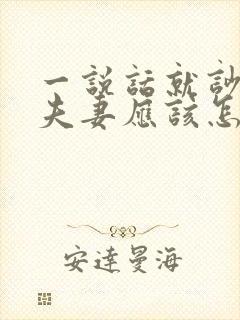 一説話就
夫妻應該怎
安達曼海